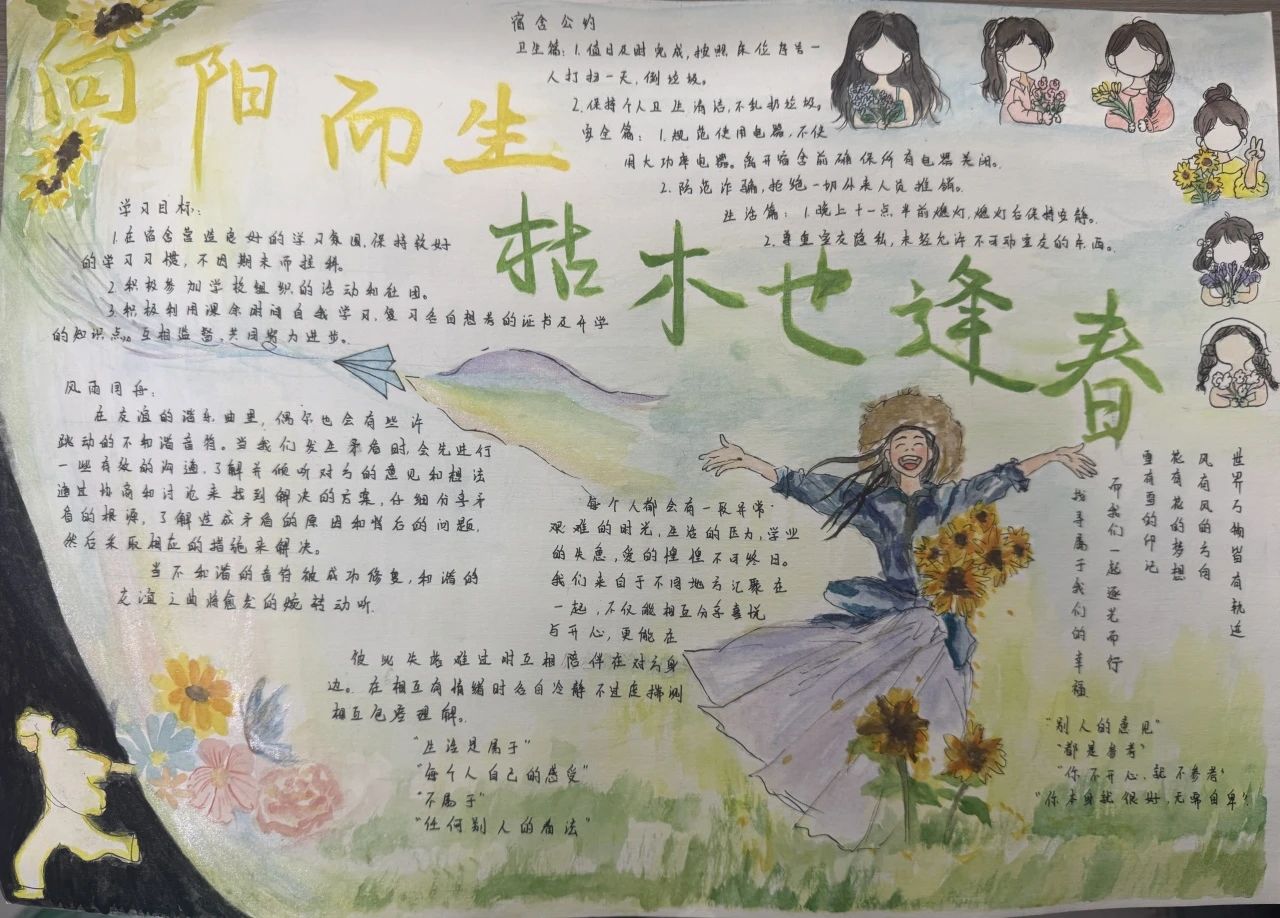 向阳而生
枯木也逢春
宿舍公约
卫生篇：1.值日及时完成，按照床位序号一
人打扫一天，倒垃圾。
2.保持个人卫生清洁，不乱扔垃圾。
安全篇：1.规范使用电器，不使
用大功率电器。离开宿舍前确保所有电器关闭。
2.防范诈骗，拒绝一切外来人员推销。
生活篇：1.晚上十一点半前熄灯，熄灯后保持安静。
2.尊重室友隐私，未经允许不可动室友的东西。
学习目标：
1.在宿舍营造良好的学习氛围，保持较好
的学习习惯，不因期末而挂科。
2.积极参加学校组织的活动和社团。
3.积极利用课余时间自我学习，复习各自想考的证书及开学
的知识点。互相监督，共同努力进步。
风雨同舟：
在友谊的谐乐曲里，偶尔也会有些许
跳动的不和谐音符。当我们发生矛盾时，会先进行
一些有效的沟通，了解并倾听对方的意见和想法
通过协商和讨论来找到解决的方案，仔细分享矛
盾的根源，了解造成矛盾的原因和背后的问题，
然后采取相应的措施来解决。
当不和谐的音符被成功修复，和谐的
友谊之曲将愈发的婉转动听。
每个人都会有一段异常
艰难的时光，生活的压力，学业
的失意，爱的惶惶不可终日。
我们来自于不同地方汇聚在
一起，不仅能相互分享喜悦
与开心，更能在
彼此失落难过时互相陪伴在对方身
边。在相互有情绪时各自冷静不过度揣测
相互包容理解。
“生活是属于”
“每个人自己的感受”
“不属于”
“任何别人的看法”
世界万物皆有轨迹
风有风的方向
花有花的梦想
雪有雪的印记
而我们一起逐光而行
找寻属于我们的幸福
“别人的意见”
“都是参考”
“你不开心，就不参考”
“你本身就很好，无需自卑”